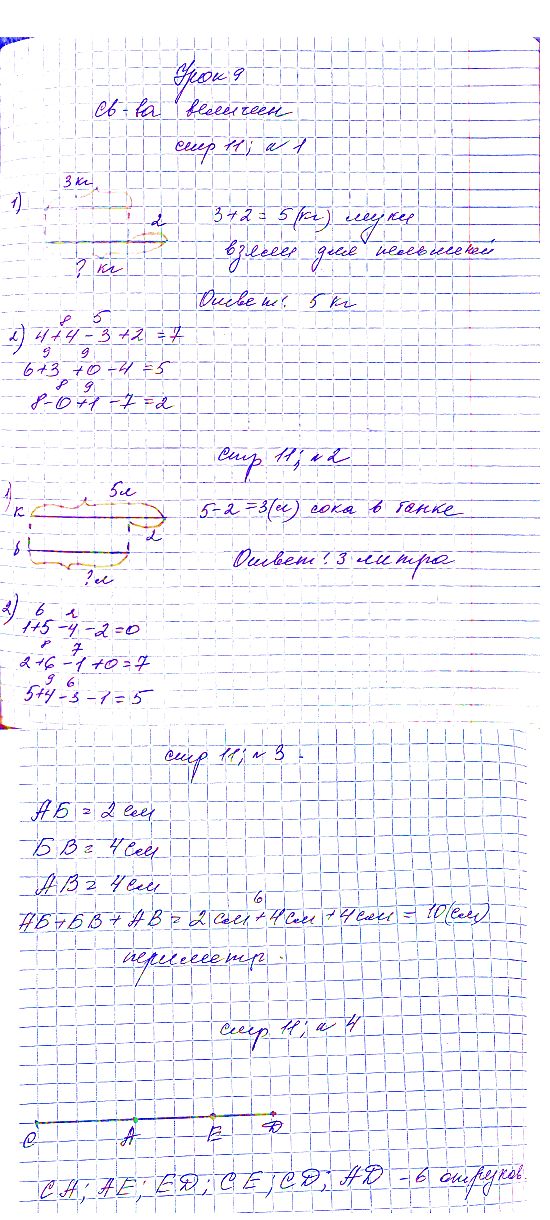 Урок 9
Св-ва величин
стр 11; №1
1) 3 кг
2
? кг
3+2=5(кг) муки
взяли для пельменей
Ответ: 5 кг
8 5
2) 4+4-3+2=7
9 9
6+3+0-4=5
8 9
8-0+1-7=2
стр 11; №2
1) 5л
к
2
б
?л
5-2=3(л) сока в банке
Ответ: 3 литра
2) 6 2
1+5-4-2=0
8 7
2+6-1+0=7
9 6
5+4-3-1=5
стр 11; №3.
АБ = 2 см
БВ = 4 см
АВ = 4 см
6
АБ+БВ+АВ = 2 см+4 см+4 см = 10(см)
периметр.
стр 11; №4
С А Е D
СА; АЕ; ЕD; СЕ; СD; АD - 6 отрезков.